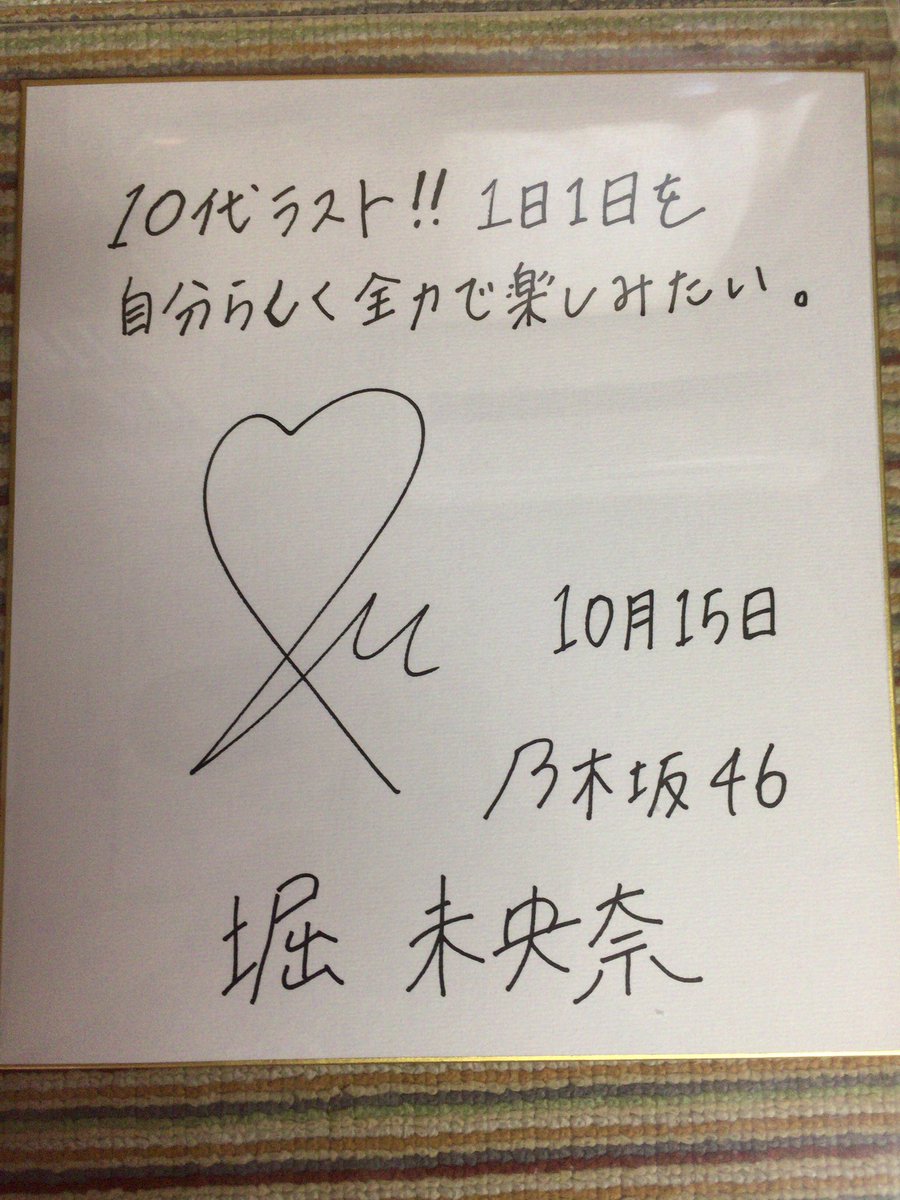 10代ラスト!! 1日1日を
自分らしく全力で楽しみたい。
10月15日
乃木坂46
堀 未央奈